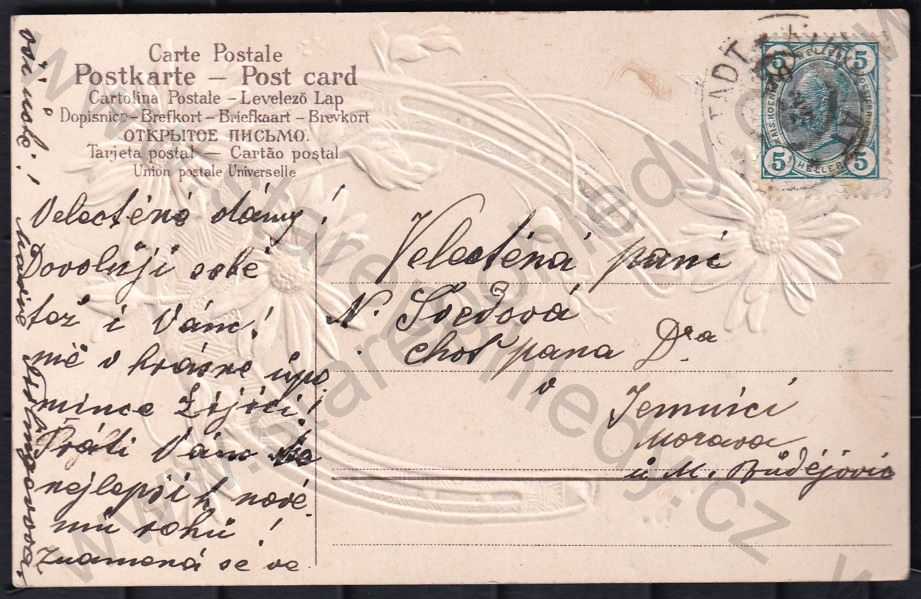 Carte Postale
Postkarte – Post card
Cartolina Postale – Levelező Lap
Dopisnice – Brefkort – Briefkaart – Brevkort
ОТКРЫТОЕ ПИСЬМО.
Tarjeta postal – Cartão postal
Union postale Universelle
5 HELLER 5
5 HELLER 5
Velectěné dámy!
Dovoluji sobě
též i Vám!
mě v krásné úpo
mince žijící!
Přáti Vám
nejlepší k nové
mu roku!
Znamená se ve
vší úctě!
Velectěná paní
N. Švedová
choť pana Dra
v
Jemnici
Morava
u M. Budějovic
www.starepohledy.cz